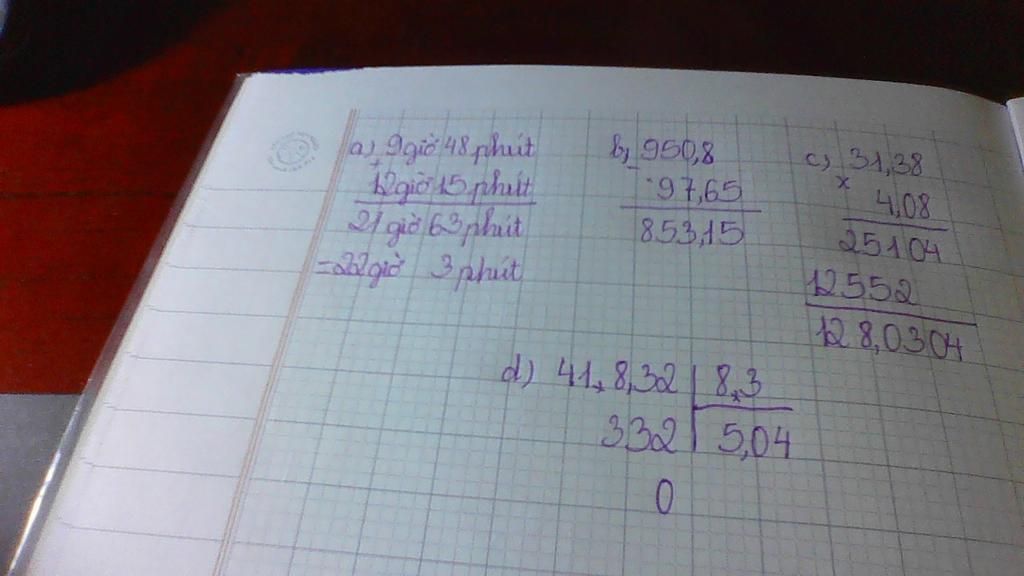 a) 9 giờ 48 phút
+
12 giờ 15 phút
21 giờ 63 phút
= 22 giờ 3 phút
b) 950,8
-
97,65
853,15
c) 31,38
x
4,08
25104
12552
128,0304
d) 41,8,32 8,3
332 5,04
0